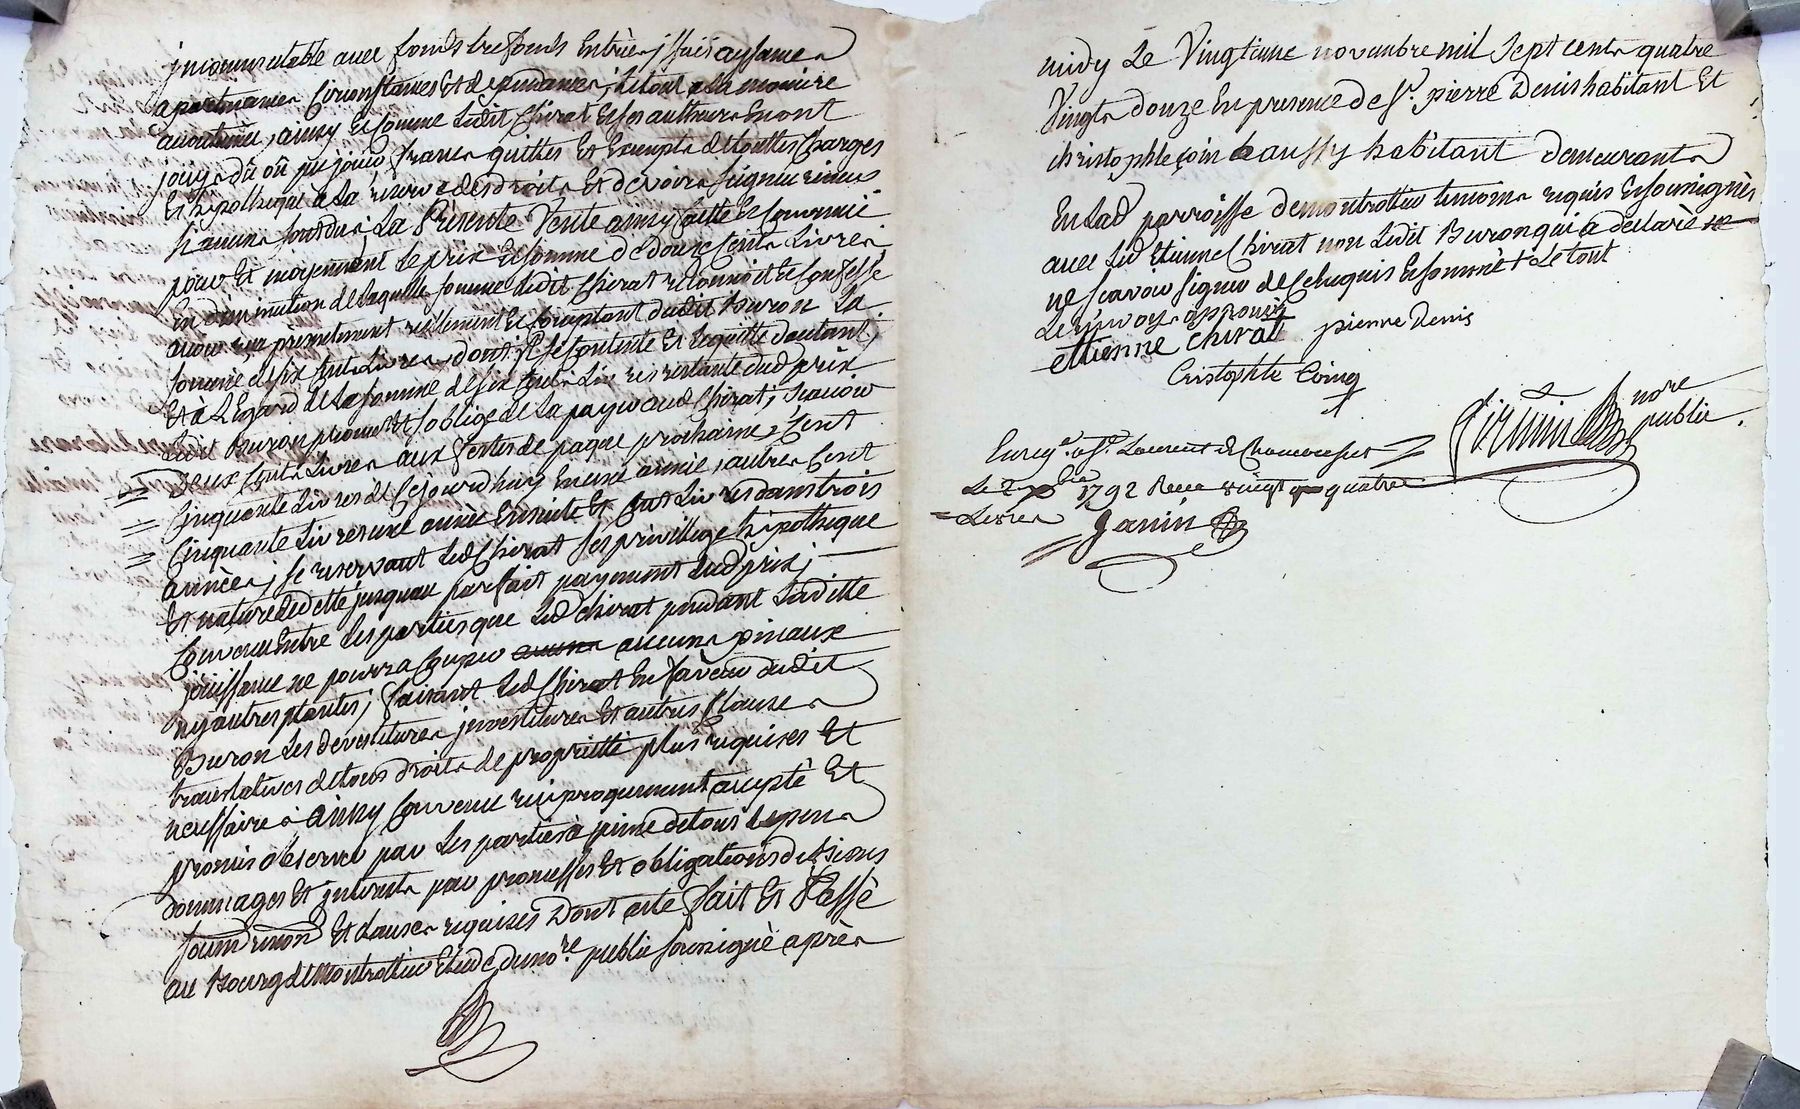 jncommutable avec fonds tresfonds Entrées jssües aysances
apartenances Circonstances Et dependances, le tout a la maniere
acoutumée, ainsy Et Comme Ledit Chirat Et ses autheurs En ont
jouys dû où pu jouir francs quittes Et Exempts de touttes Charges
Et hipotheque a La reserve des droits Et devoirs seigneuriaux
si aucuns sont dus La Présente Vente ainsy faitte Et Convenue
pour Et moyennant Le prix Et somme de douze Cents Livres
En diminution de laquelle somme Ledit Chirat reconnoit Et Confesse
avoir reçu présentement réellement Et Comptant dudit Buron La
somme de six Cents Livres, dont jl se Contente Et Lequitte d'autant,
Et à L'Egard de La somme de six Cents Livres restante dud prix
Ledit Buron promet Et s'oblige de La payer aud Chirat, sçavoir
deux Cents Livres aux festes de paque prochaine, Cent
Cinquante Livres de Cejourdhuy En une année, autres Cent
Cinquante Livres une année Ensuite Et Cent Livres dans trois
années; se reservant Led Chirat ses privillege hipotheque
Et nature de dette jusquau parfait payement dud prix;
Convenu Entre Les parties que Led Chirat pendant Laditte
jouissance ne pourra Couper aucuns aucuns pinaux
ny autres plantes; faisant Led Chirat En faveur dudit
Buron Les devestitures jnvestitures Et autres Clauses
translatives de tous droits de proprietté plus requises Et
necessaires ainsy Convenu reciproquement accepté Et
promis observer par Les parties à peine de tous depens
dommages Et jnterests par promesses Et obligations de biens
soum renon Et clauses requises Dont acte fait Et Passé
au Bourg de Montrottier Etude du no.re public soussigné après
midy Le Vingtieme novembre mil sept cents quatre
Vingts douze En presence de S.r pierre Denis habitant Et
christophle çoin aussy habitant demeurants
En Lad parroisse de montrottier temoins requis Et soussignés
avec Led Etienne Chirat non Ledit Buron qui a declaré ne
ne sçavoir signer de Ce Enquis Et sommé + Le tout
Le renvoy approuvé
ettienne chirat pierre Denis
Cristophle Coing
nore
public
Enreg.é a S.t Laurent de Chamousset
Le 2 Xbre 1792 Recu vingt quatre
Livres Janin